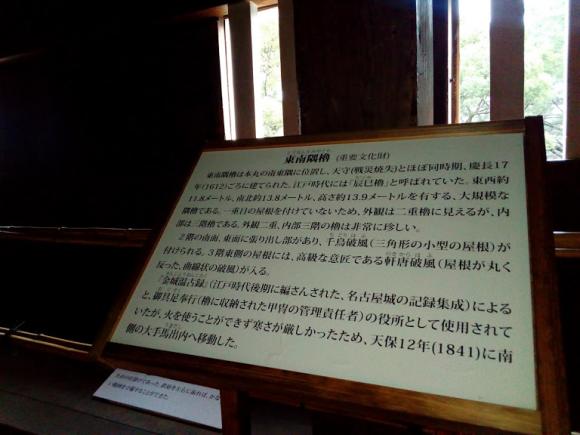 とうなんすみやぐら
東南隅櫓 (重要文化財)
東南隅櫓は本丸の南東隅に位置し、天守(戦災焼失)とほぼ同時期、慶長17
年(1612)ごろに建てられた。江戸時代には「辰巳櫓」と呼ばれていた。東西約
11.8メートル、南北約13.8メートル、高さ約13.9メートルを有する、大規模な
隅櫓である。一重目の屋根を付けていないため、外観は二重櫓に見えるが、内
部は三階櫓である。外観二重、内部三階の櫓は非常に珍しい。
2階の南面、東面に張り出し部があり、千鳥破風(三角形の小型の屋根)が
付けられる。3階東側の屋根には、高級な意匠である軒唐破風(屋根が丸く
反った、曲線状の破風)が入る。
『金城温古録』(江戸時代後期に編さんされた、名古屋城の記録集成)による
と、御具足奉行(櫓に収納された甲冑の管理責任者)の役所として使用されて
いたが、火を使うことができず寒さが厳しかったため、天保12年(1841)に南
側の大手馬出内へ移動した。